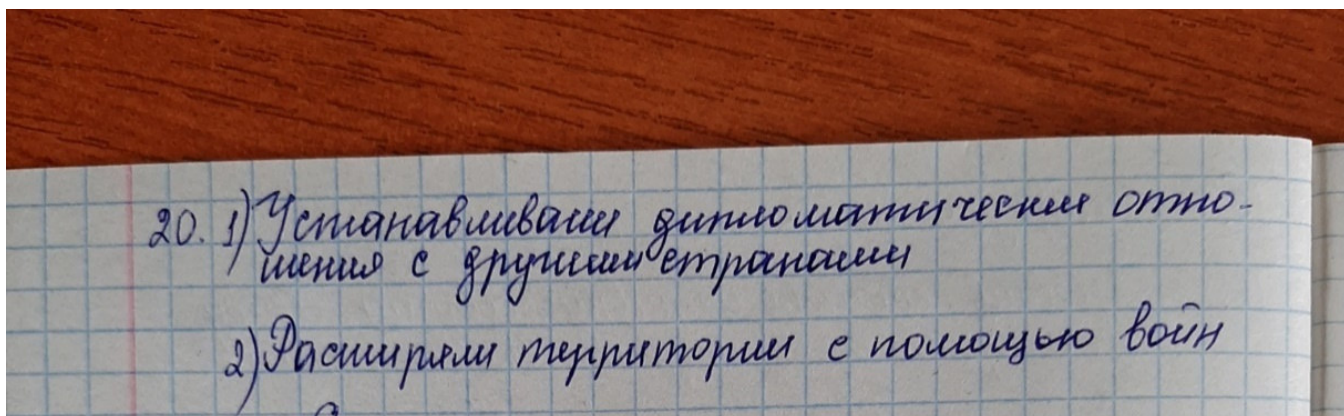 20. 1) Устанавливали дипломатические отно-
шения с другими странами
2) Расширяли территории с помощью войн